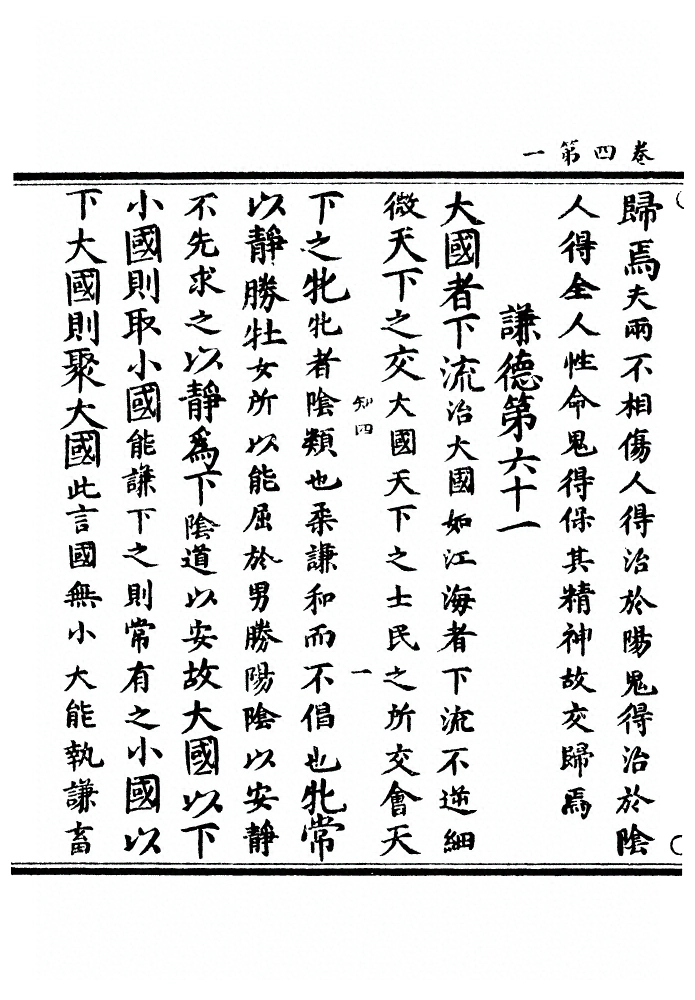 卷四第一
歸焉夫兩不相傷人得治於陽鬼得治於陰
人得全人性命鬼得保其精神故交歸焉
謙德第六十一
大國者下流治大國如江海者下流不逆細
微天下之交大國天下之士民之所交會天
知四
一
下之牝牝者陰類也柔謙和而不倡也牝常
以靜勝牡女所以能屈於男勝陽陰以安靜
不先求之以靜爲下陰道以安故大國以下
小國則取小國能謙下之則常有之小國以
下大國則聚大國此言國無小大能執謙畜